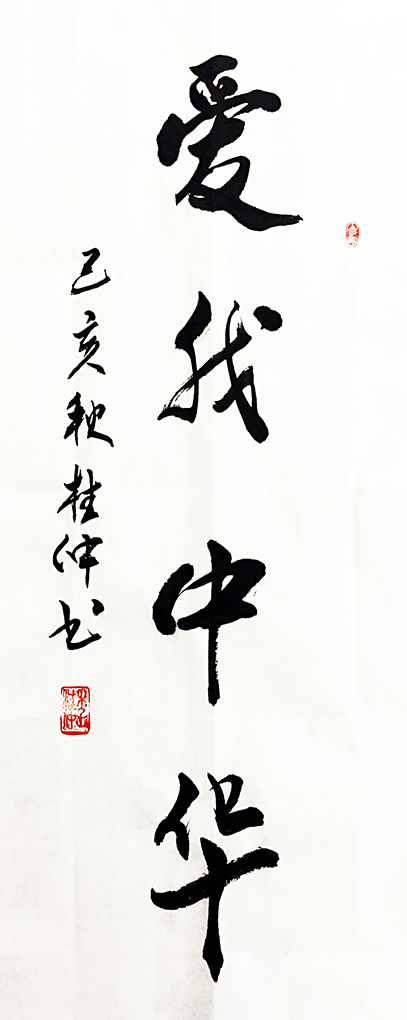 爱我中华
己亥秋桂仲书